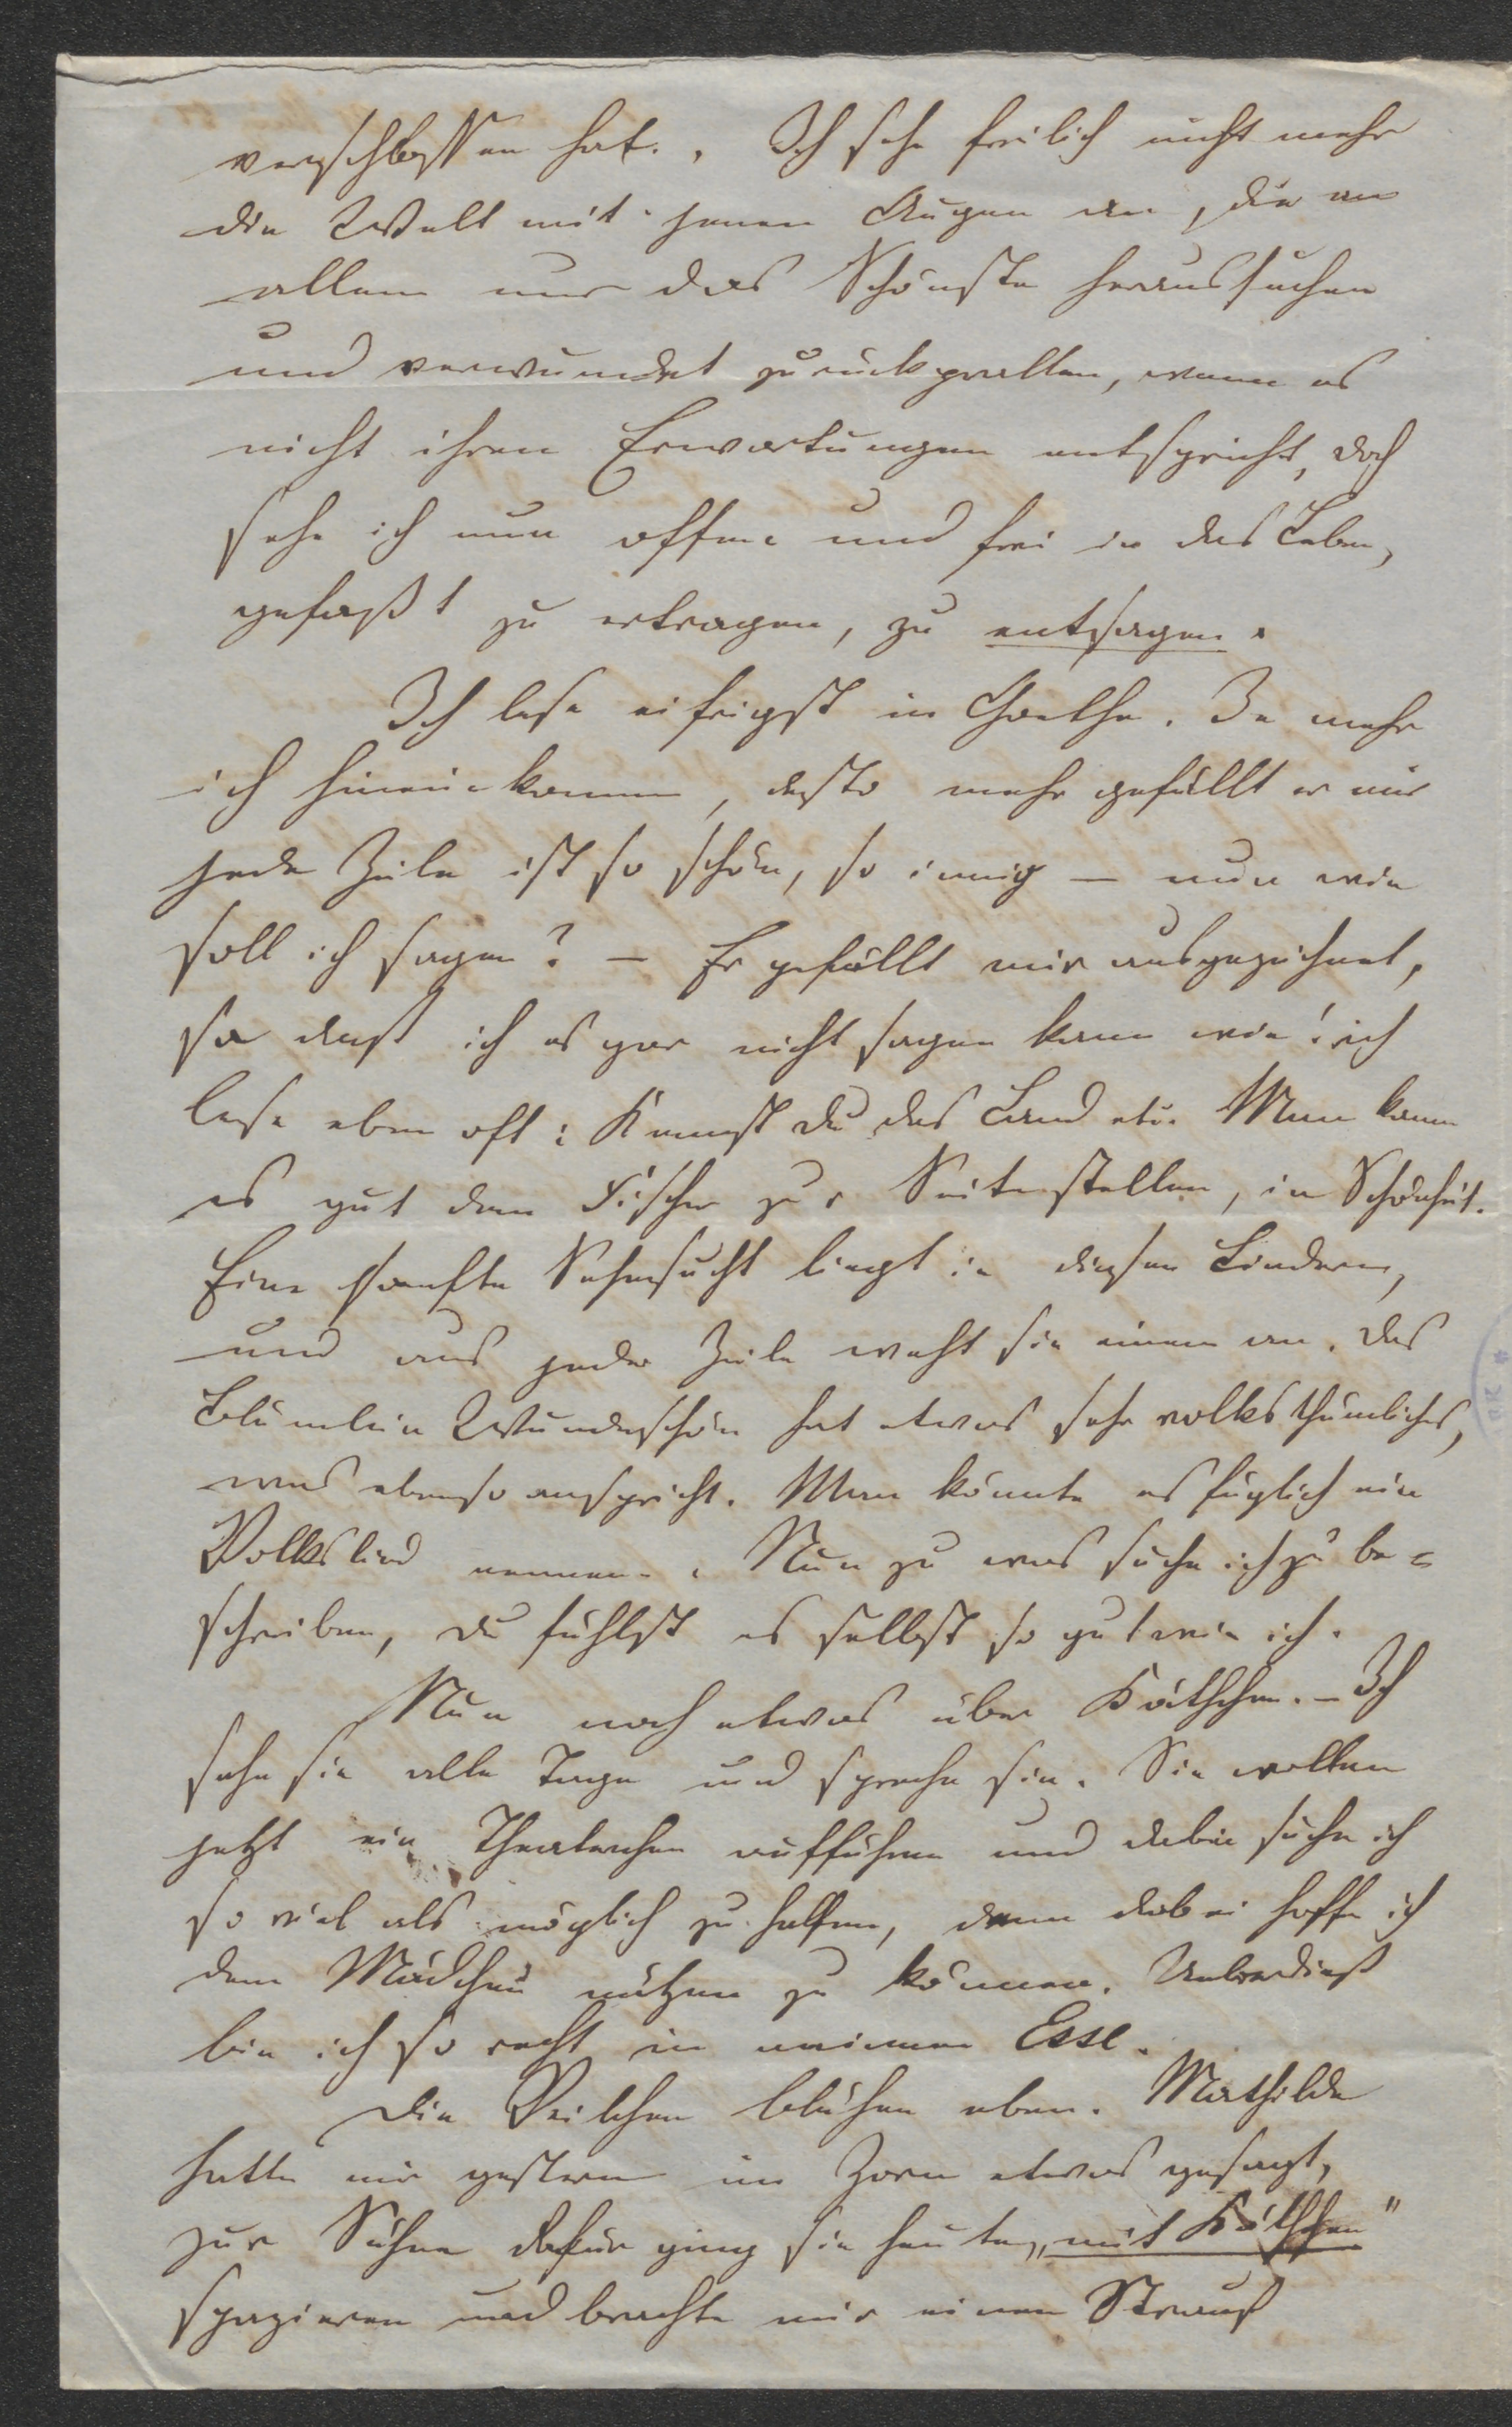 verschlossen hat. Ich sehe freilich nicht mehr
die Welt mit jenen Augen an, die an
allem nur das Schönste heraussuchen
und verwundet zurückprallen, wenn es
nicht ihren Erwartungen entspricht, doch
sehe ich nun offen und frei in das Leben,
gefaßt zu ertragen, zu entsagen.
Ich lese eifrigst in Goethe. Je mehr
ich hineinkomme, desto mehr gefällt er mir
jede Zeile ist so schön, so innig – nun wie
soll ich sagen? – Er gefällt mir ausgezeichnet,
so daß ich es gar nicht sagen kann wie! ich
lese eben oft: Kennst du das Land etc. Man kann
es gut dem Fischer zur Seite stellen, in Schönheit.
Eine sanfte Sehnsucht liegt in diesen Liedern,
und aus jeder Zeile weht sie einem an. Das
Blümlein Wunderschön hat etwas sehr volksthümliches,
was ebenso anspricht. Man könnte es füglich ein
Volkslied nennen. Nun zu was suche ich zu be=
schreiben, du fühlst es selbst so gut wie ich.
Nun noch etwas über Käthchen. – Ich
sehe sie alle Tage und spreche sie. Sie wollen
jetzt ein Theaterchen aufführen und dabei suche ich
so viel als möglich zu helfen, denn dabei hoffe ich
dem Mädchen nützen zu können. Ueberdieß
bin ich so recht in meinem Esse.
Die Veilchen blühen eben. Mathilde
hatte mir gestern im Zorn etwas gesagt,
zur Sühne dafür ging sie heute „mit Käthchen"
spazieren und brachte mir einen Strauß